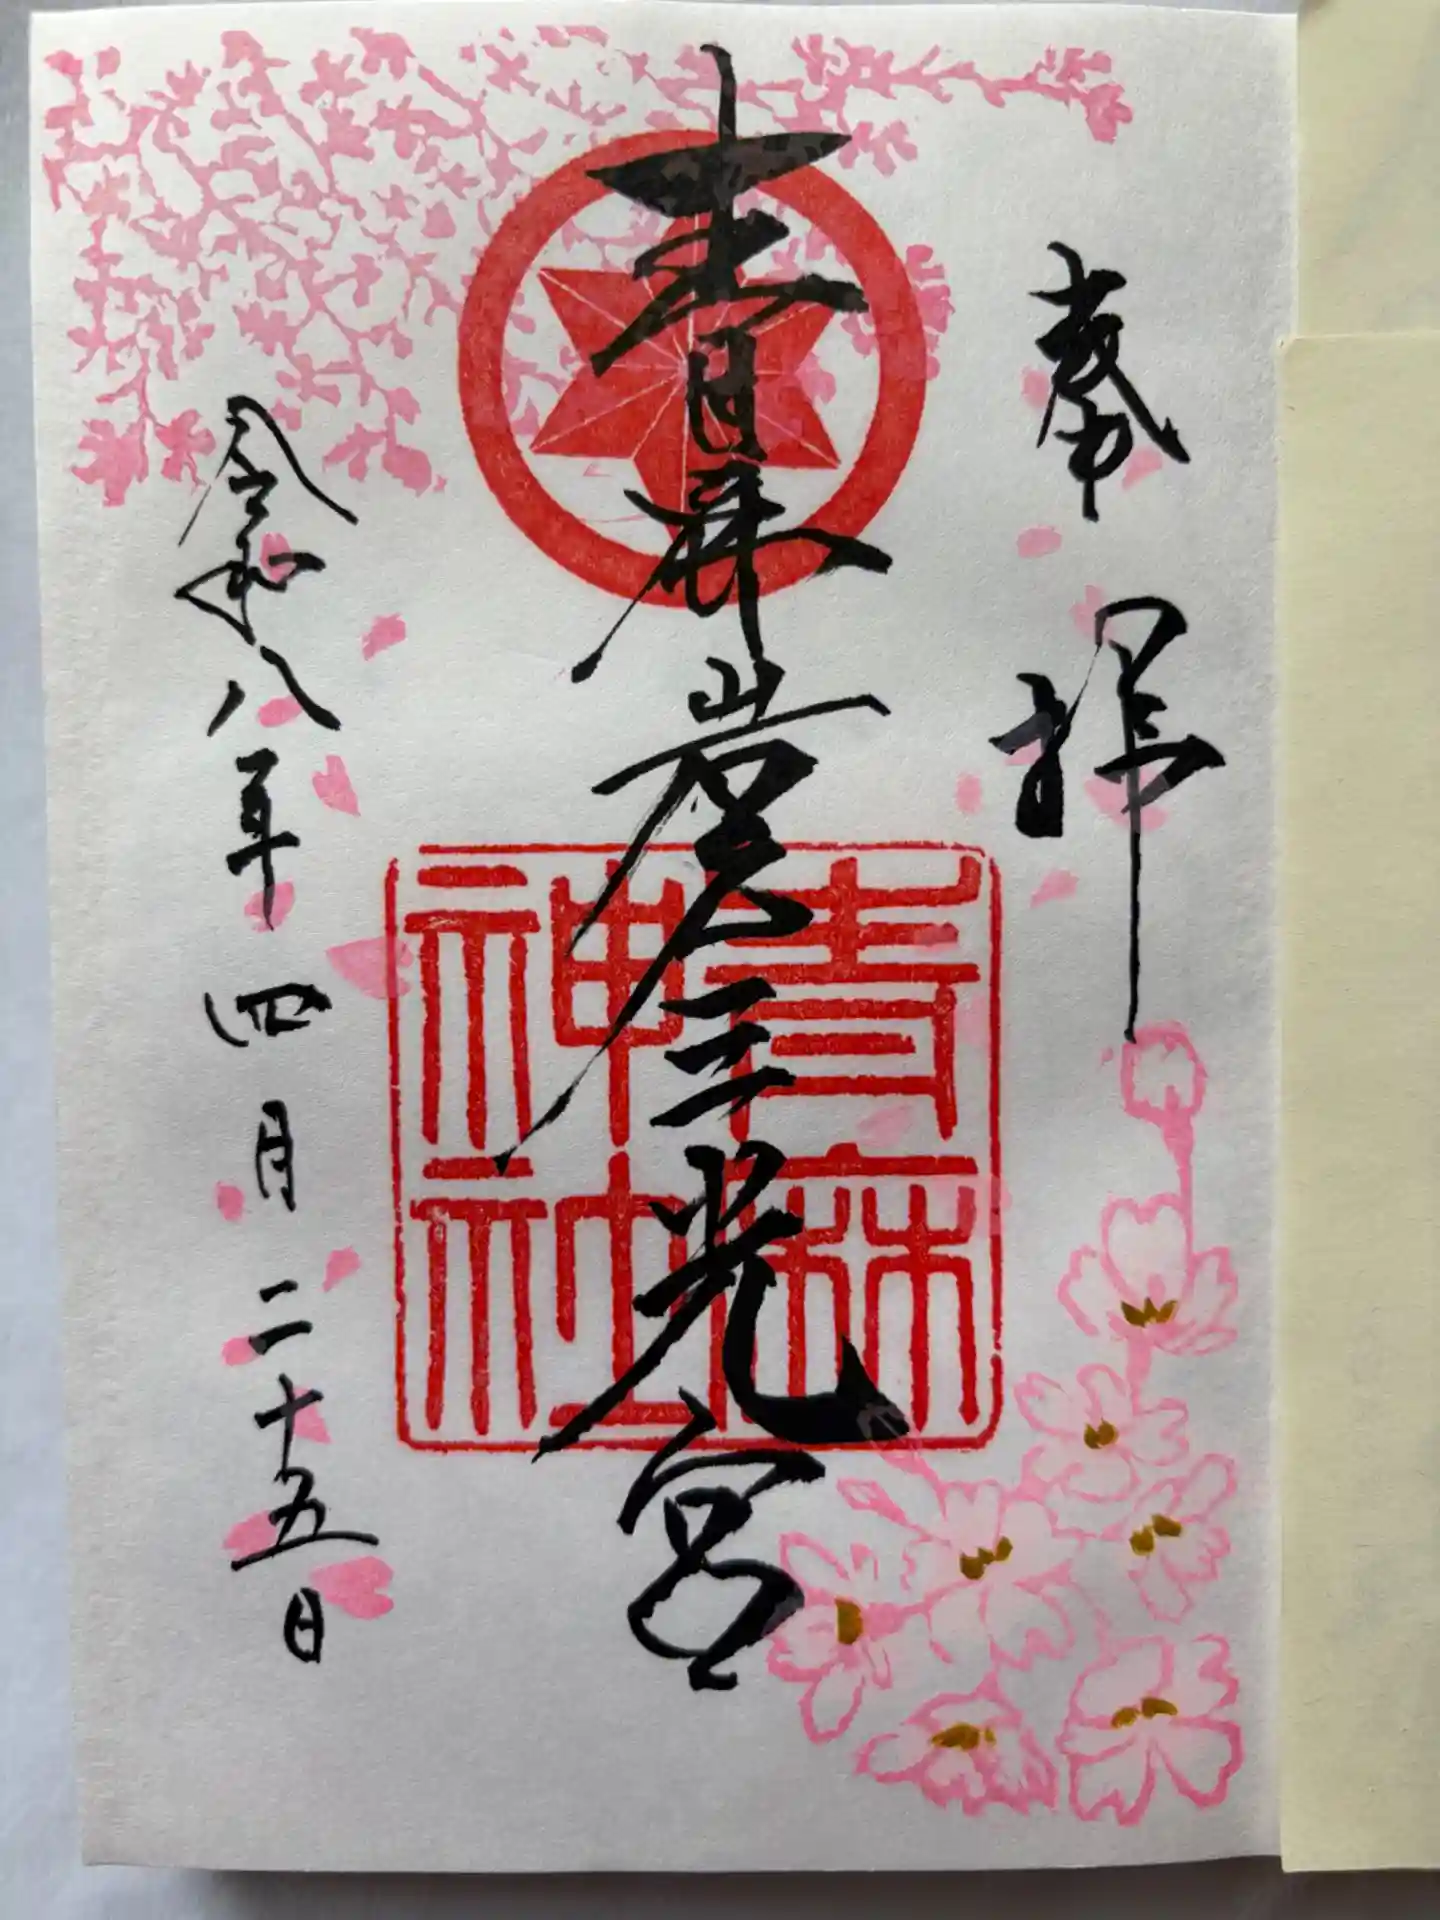 奉拝
青麻三光宮
青麻
神社
令和八年四月二十五日